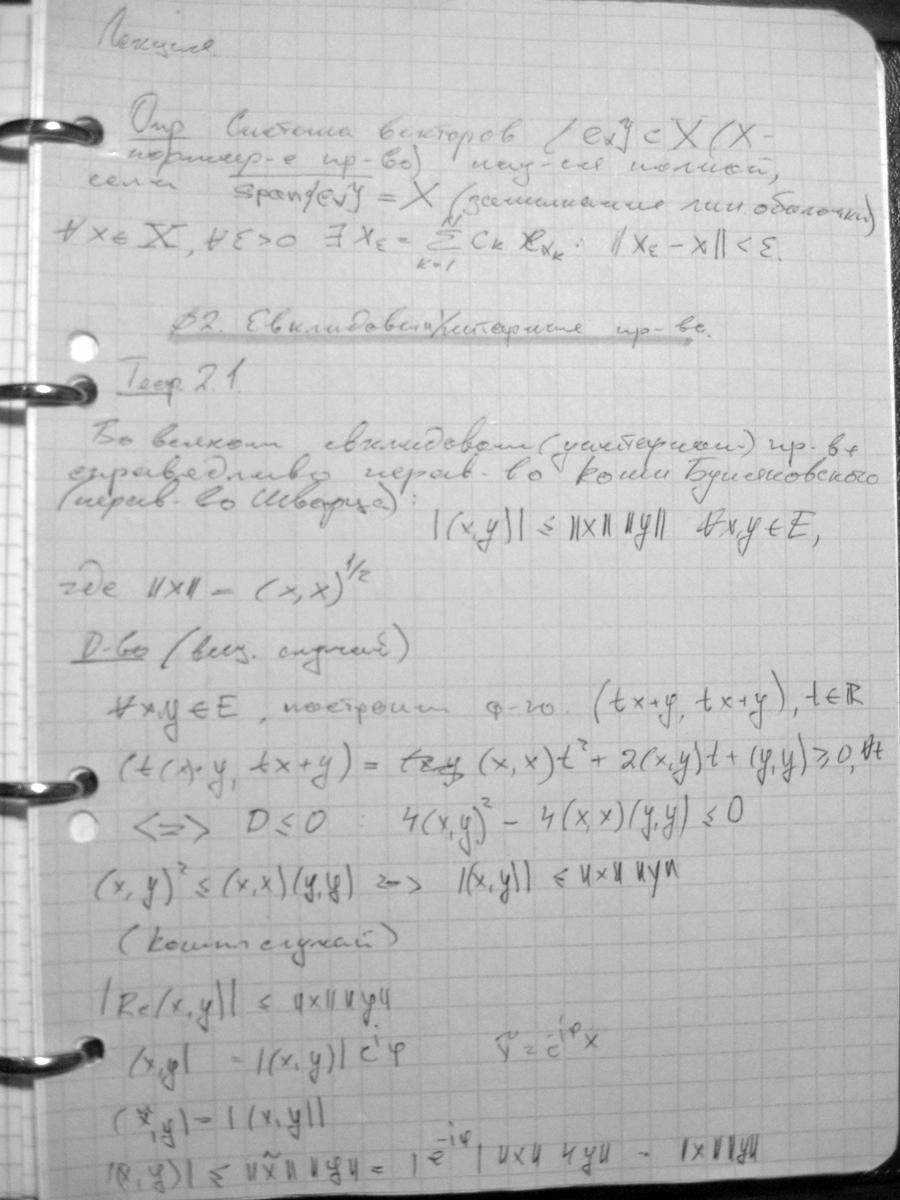 Лекция
Опр Система векторов {e_α} ⊂ X (X -
нормир-е пр-во) наз-ся полной,
если span{e_α} = X (замыкание лин оболочки)
∀ x ∈ X, ∀ ε>0 ∃ x_ε = ∑_{k=1}^{N} c_k e_{α_k} : ||x_ε - x|| < ε.
§2. Евклидовы/унитарные пр-ва.
Теор. 2.1.
Во всяком евклидовом (унитарном) пр-ве
справедливо нерав-во Коши Буняковского
(нерав-во Шварца):
|(x,y)| ≤ ||x|| ||y|| ∀x,y ∈ E,
где ||x|| = (x,x)^{1/2}
D-во (вещ. случай)
∀x,y ∈ E, построим ф-ю (tx+y, tx+y), t∈ℝ
(tx+y, tx+y) = (x,x)t² + 2(x,y)t + (y,y) ≥ 0, ∀t
<=> D ≤ 0 : 4(x,y)² - 4(x,x)(y,y) ≤ 0
(x,y)² ≤ (x,x)(y,y) => |(x,y)| ≤ ||x|| ||y||
(компл случай)
|Re(x,y)| ≤ ||x|| ||y||
(x,y) = |(x,y)| e^{iφ} x̃ = e^{-iφ} x
(x̃,y) = |(x,y)|
|(x,y)| ≤ ||x̃|| ||y|| = |e^{-iφ}| ||x|| ||y|| = ||x|| ||y||